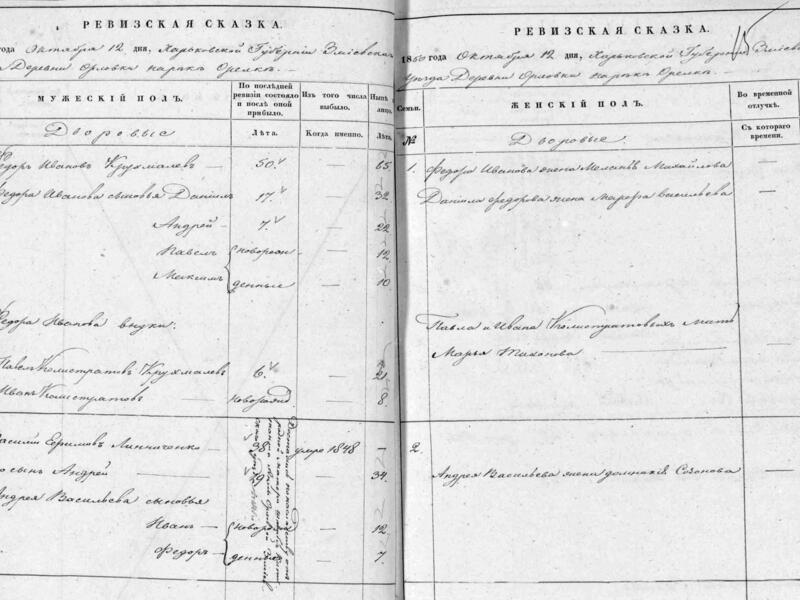 РЕВИЗСКАЯ СКАЗКА.
года Октября 12 дня, Харьковской Губерніи Зміевска
Деревни Орловки
МУЖЕСКІЙ ПОЛЪ.
По последней ревизіи состояло и послѣ оной прибыло.
Изъ того числа выбыло.
Нынѣ лицо.
Дворовые
Лѣта.
Когда именно.
Лѣта.
Федоръ Ивановъ Крухмалевъ — 50. — 65
Федора Иванова сыновья Данило 17. — 32
Андрей — 7. — 22
Павелъ новорож — 12
Максимъ денные — 10
Федора Иванова внуки.
Павелъ Колистратовъ Крухмалевъ 6. — 21
Иванъ Колистратовъ — новорожд — 8
Василій Ефимовъ Линниченко — 38 умре 1848 —
го сынъ Андрей 34.
Андрея Васильева сыновья
Иванъ — новорож — 12
Федоръ — денные — 7
РЕВИЗСКАЯ СКАЗКА.
1850 года Октября 12 дня, Харьковской Губерніи Зміев
Уезда Деревни Орловки
Семьи.
ЖЕНСКІЙ ПОЛЪ.
Во временной отлучкѣ.
№
Дворовые
Съ котораго времени.
1. Федора Иванова жена Михайлова —
Данила Федорова жена Марфа Васильева —
Павла и Ивана Колистратовыхъ Мать
Марья Тихонова —
2.
Андрея Васильева жена Созонова —